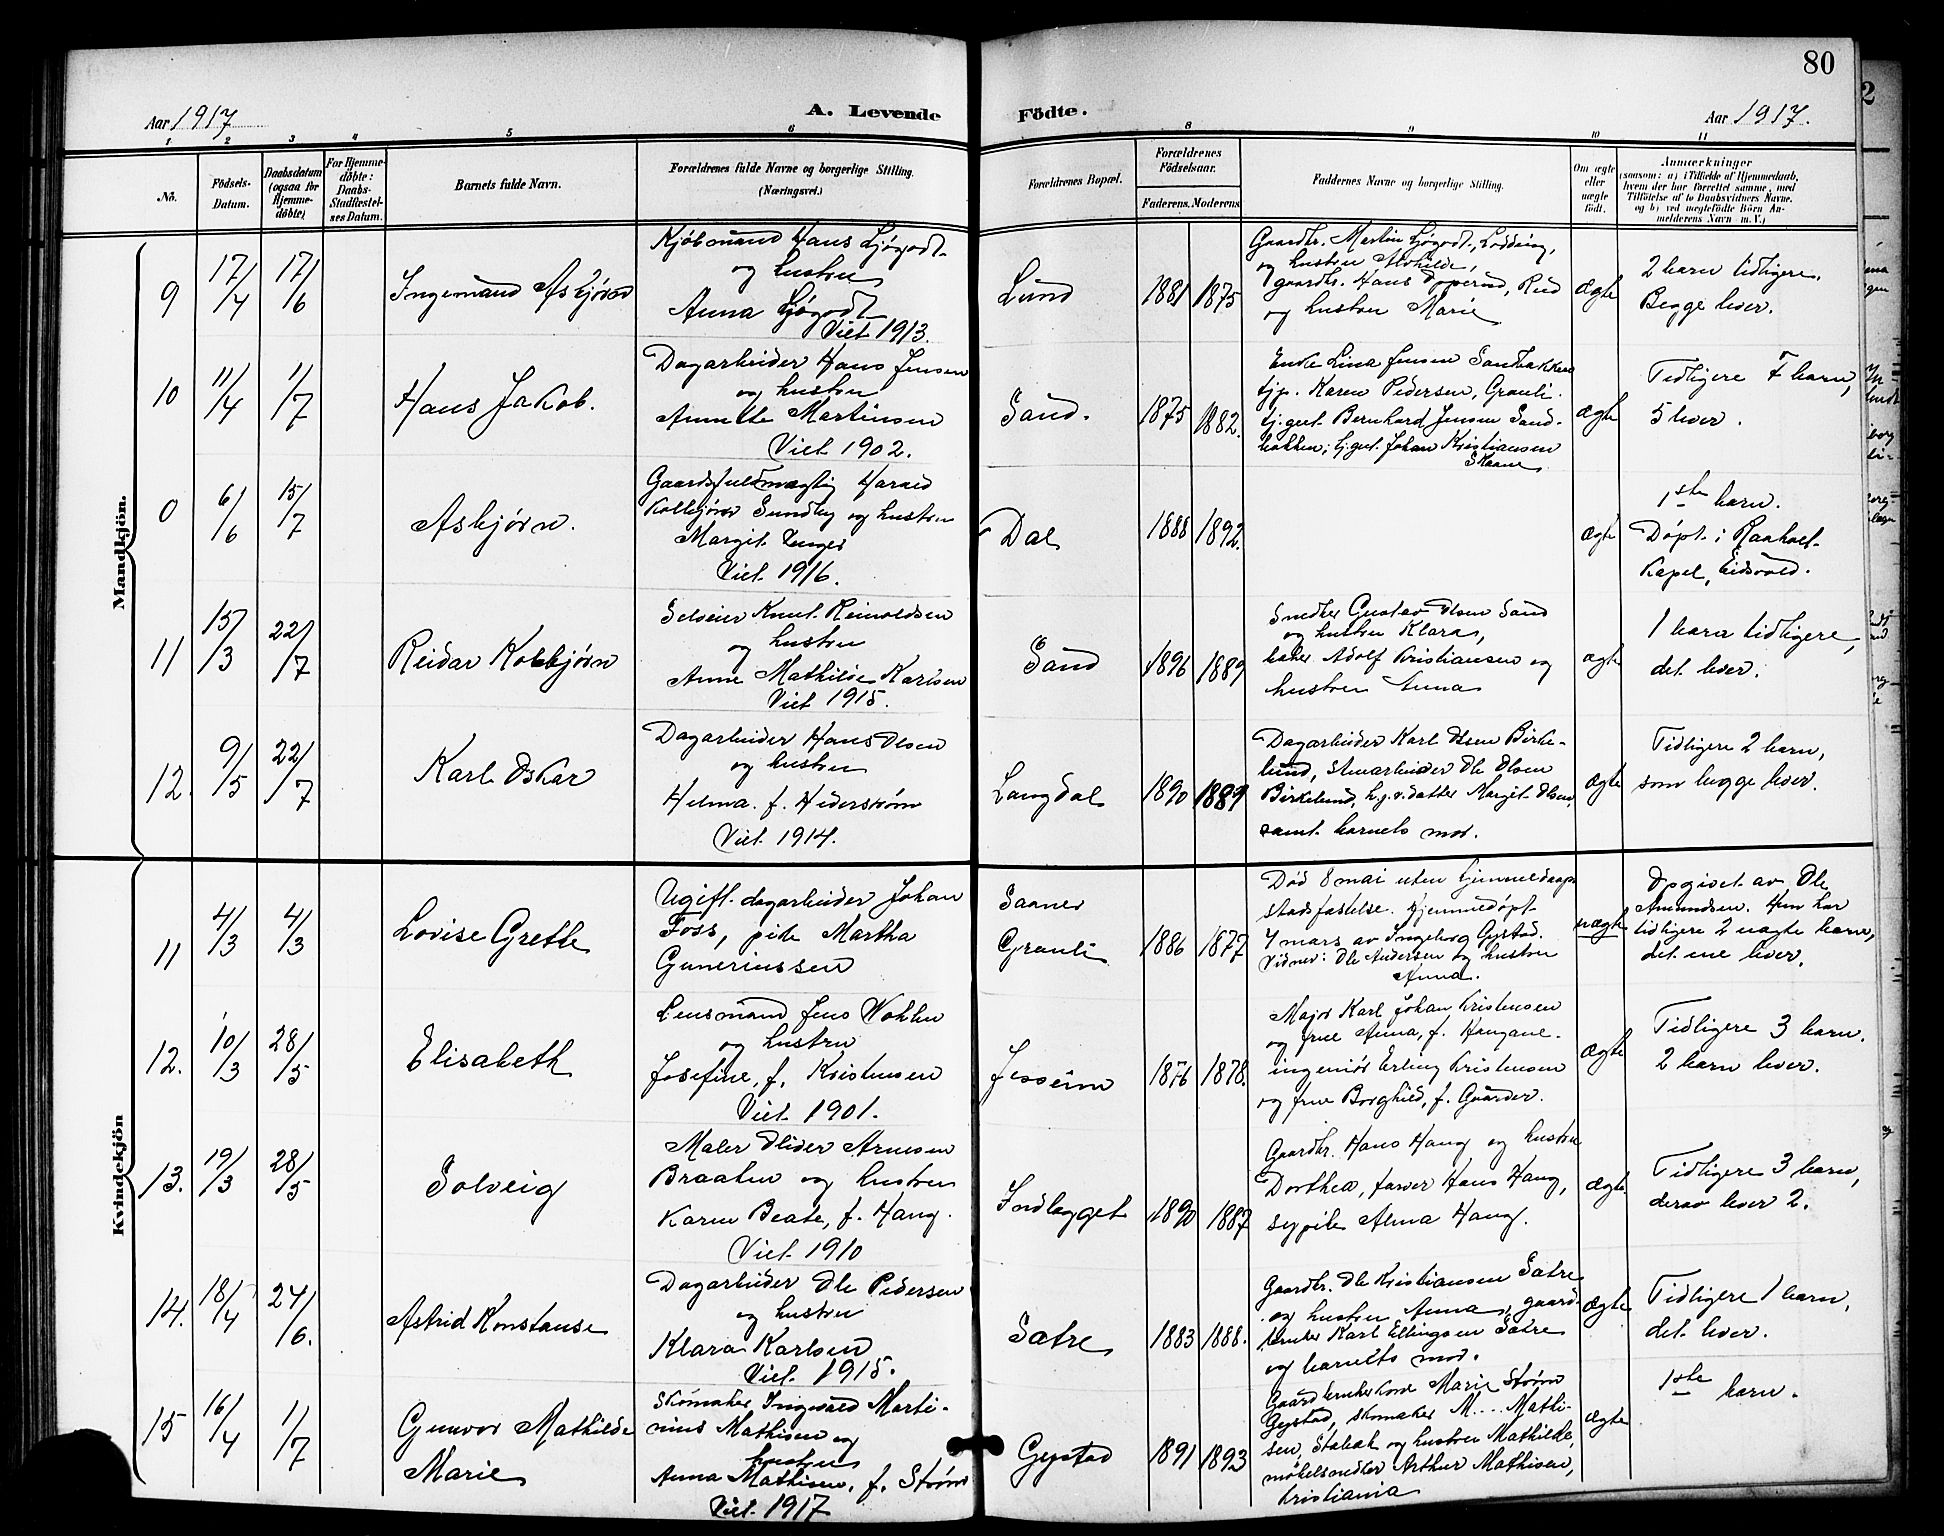 80
Aar 1917
A. Levende
Födte.
Aar 1917.
1 2 3 4 5 6 8 9 10 11
No.
Födsels-
Datum.
Daabsdatum
(ogsaa for
Hjemme-
döbte)
For Hjemme-
döbte:
Daabs-
Stadfæstel-
ses Datum.
Barnets fulde Navn.
Forældrenes fulde Navne og borgerlige Stilling.
(Næringsvei.)
Forældrenes Bopæl.
Forældrenes
Födselsaar.
Faderens. Moderens.
Faddernes Navne og borgerlige Stilling.
Om ægte
eller
uægte
födt.
Anmærkninger
(saasom: a) i Tilfælde af Hjemmedaab,
hvem der har forrettet samme, med
Tilföielse af to Daabsvidners Navne.
og b) ved uægtefödte Börn An-
melderens Navn m. V.)
Mandkjön.
9
17/4
17/6
Ingemund Asbjørn
Kjøbmand Hans Ljøgodt
og hustru
Anna Ljøgodt
Viet 1913.
Lund
1881
1875
Gaardbr. Martin Ljøgodt, Lodding,
og hustru Alvhilde,
gaardbr. Hans Opperud, Rud
og hustru Marie
ægte
2 barn tidligere.
Begge lever.
10
11/4
1/7
Hans Jakob.
Dagarbeider Hans Jensen
og hustru
Annette Martinsen
Viet 1902.
Sand.
1875
1882.
Enke Lina Jensen Sandbakken
tjp. Karen Pedersen, Grauli.
tj.gut Bernhard Jensen Sand-
bakken; tj.gut Johan Kristiansen
Skaane
ægte
Tidligere 7 barn,
5 lever.
0
6/6
15/7
Asbjørn.
Gaardsfuldmægtig Harald
Kolbjørn Sundby og hustru
Margit Unger
Viet 1916.
Dal
1888
1892.
ægte
1ste barn.
Døpt i Raaholt
Kapel, Eidsvold.
11
15/3
22/7
Reidar Kolbjørn
Selveier Knut Reinoldsen
og hustru
Anne Mathilde Karlsen
Viet 1915.
Sand
1896
1889
Snedker Gustav Olsen Sand
og hustru Klara,
baker Adolf Kristiansen og
hustru Anna
ægte
1 barn tidligere,
det lever.
12.
9/5
22/7
Karl Oskar
Dagarbeider Hans Olsen
og hustru
Helma f. Hederstrøm
Viet 1914.
Langdal
1890
1889
Dagarbeider Karl Olsen Birke-
lund, stenarbeider Ole Olsen
Birkelund, h.j.v. datter Margit Olsen
samt barnets mor.
ægte
Tidligere 2 barn,
som begge lever.
Kvindekjön
11
4/3
4/3
Lovise Grethe
Ugift dagarbeider Johan
Foss, pike Martha
Guneriussen
Saaner
Grauli
1886
1877
Død 8 mai uten hjemmedaaps
stadfæstelse. Hjemmedøpt
4 mars av Ingeborg Gystad.
Vidner: Ole Andersen og hustru
Anna.
uægte
Opgivet av Ole
Amundsen. Hun har
tidligere 2 uægte barn,
det ene lever.
12.
10/3
28/5
Elisabeth
Lensmand Jens Wahlen
og hustru
Josefine, f. Kristensen
Viet 1901.
Jessheim
1876
1878.
Major Karl Johan Kristensen
og frue Anna, f. Haugane.
ingeniør Erling Kristensen
og frue Borghild, f. Gaarder.
ægte
Tidligere 3 barn.
2 barn lever.
13.
19/3
28/5
Solveig
Maler Olider Arnesen
Braathen og hustru
Karen Beate, f. Haug.
Viet 1910
Indlægget
1890
1887
Gaardbr. Hans Haug og hustru
Dorthea, farver Hans Haug,
sypike Alma Haug.
ægte
Tidligere 3 barn,
derav lever 2.
14.
18/4
24/6.
Astrid Konstanse
Dagarbeider Ole Pedersen
og hustru
Klara Karlsen
Viet 1915.
Sætre
1883
1888.
Gaardbr. Ole Kristiansen Sætre
og hustru Anna, gaard-
bruker Karl Ellingsen Sætre
og barnets mor.
ægte
Tidligere 1 barn,
det lever.
15
16/4
1/7
Gunvor Mathilde
Marie
Skomaker Ingevald Marti-
nius Mathisen og
hustru
Anna Mathisen, f. Strøm
Viet 1917
Gystad
1891
1893
Gaardbrukerkone Marie Strøm
Gystad, skomaker M.... Mathi-
sen, Stabæk og hustru Mathilde,
møbelsnedker Arthur Mathisen,
Kristiania
ægte
1ste barn.